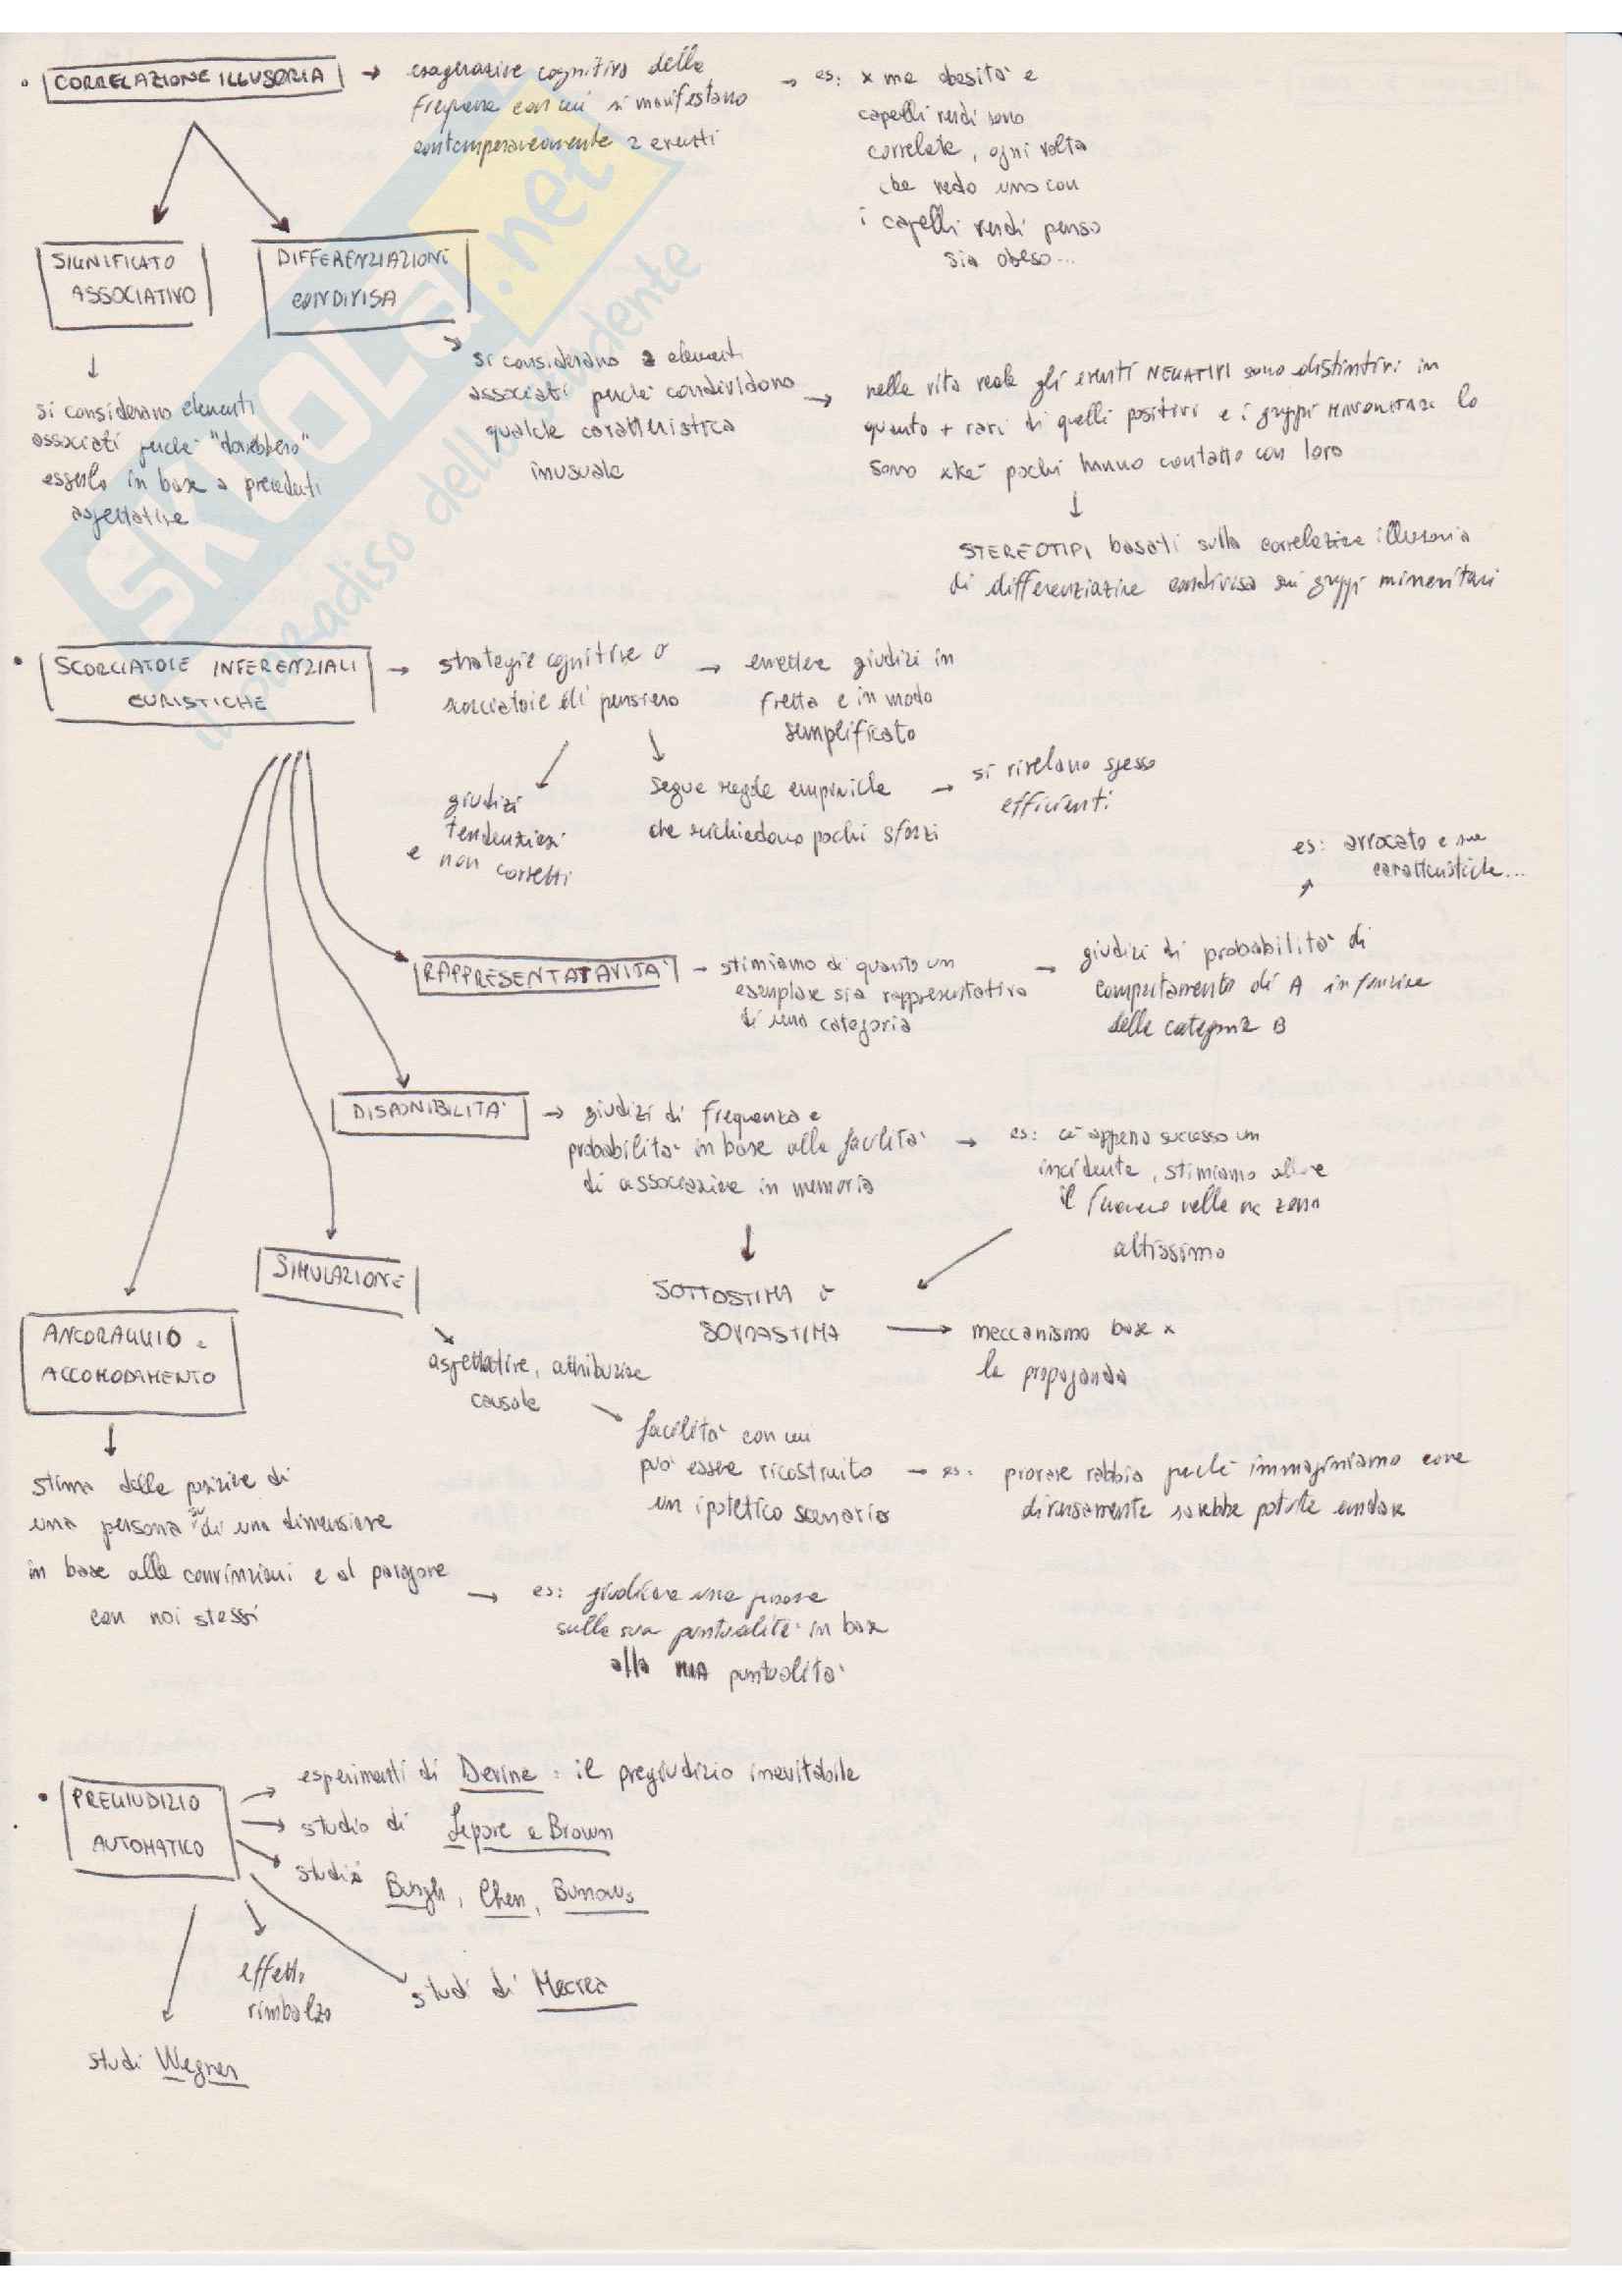 • CORRELAZIONE ILLUSORIA → esagerazione cognitiva della
frequenza con cui si manifestano
contemporaneamente 2 eventi
→ es: x me obesità e
capelli verdi sono
correlate, ogni volta
che vedo uno con
i capelli verdi penso
sia obeso...
SIGNIFICATO
ASSOCIATIVO
DIFFERENZIAZIONI
CONDIVISA
↓
si considerano elementi
associati perché "dovrebbero"
esserlo in base a precedenti
aspettative
si considerano 2 elementi
associati perché condividono
qualche caratteristica
inusuale
→ nella vita reale gli eventi NEGATIVI sono distintivi in
quanto + rari di quelli positivi e i gruppi MINORITARI lo
sono xké pochi hanno contatto con loro
↓
STEREOTIPI basati sulla correlazione illusoria
di differenziazione condivisa sui gruppi minoritari
• SCORCIATOIE INFERENZIALI
EURISTICHE
→ strategie cognitive o
scorciatoie di pensiero
→ emettere giudizi in
fretta e in modo
semplificato
giudizi
tendenziosi
e non corretti
segue regole empiriche
che richiedono pochi sforzi
→ si rivelano spesso
efficienti
es: avvocato e sue
caratteristiche...
RAPPRESENTATAVITÀ → stimiamo di quanto un
esemplare sia rappresentativo
di una categoria
→ giudizi di probabilità di
comportamento di A in funzione
della categoria B
DISPONIBILITÀ → giudizi di frequenza e
probabilità in base alla facilità
di associazione in memoria
→ es: c'è appena successo un
incidente, stimiamo allora
il nella zona
altissimo
SIMULAZIONE
SOTTOSTIMA o
SOVRASTIMA → meccanismo base x
la propaganda
ANCORAGGIO e
ACCOMODAMENTO
aspettative, attribuzione
causale
facilità con cui
può essere ricostruito
un ipotetico scenario
→ es: provare rabbia perché immaginiamo come
diversamente sarebbe potuta andare
↓
stima della posizione di
una persona su di una dimensione
in base alle convinzioni e al paragone
con noi stessi
→ es: giudicare una persona
sulla sua puntualità in base
alla MIA puntualità
• PREGIUDIZIO
AUTOMATICO
→ esperimenti di Devine: il pregiudizio inevitabile
→ studio di Lepore e Brown
→ studi Bargh, Chen, Burrows
effetto
rimbalzo
studi di Macrea
studi Wegner
SKUOLA.net
il paradiso dello studente